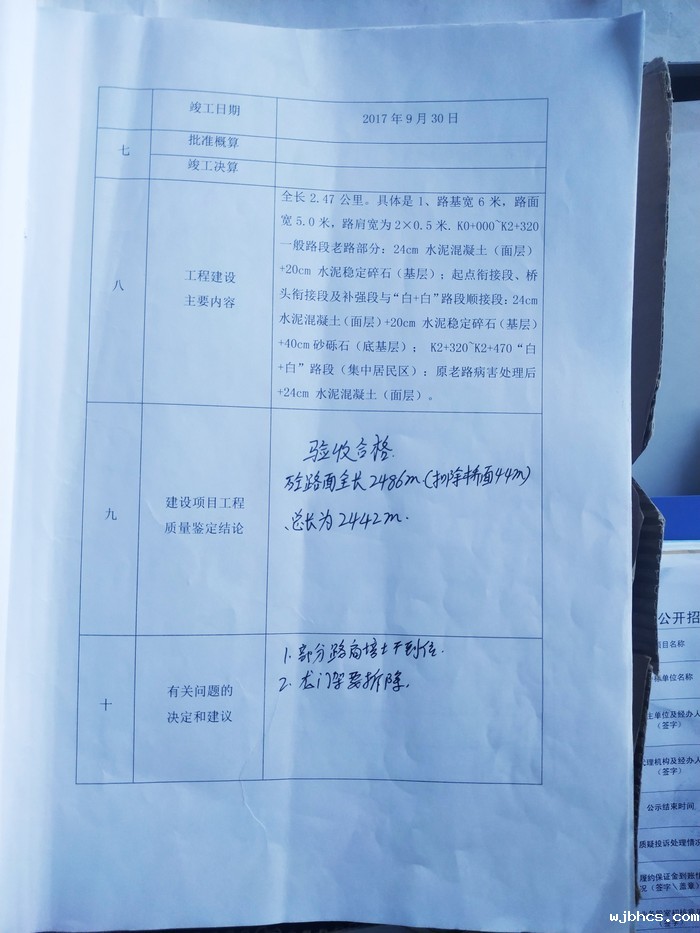 竣工日期
2017年9月30日
七
批准概算
竣工决算
八
工程建设
主要内容
全长 2.47 公里。具体是 1、路基宽 6 米，路面
宽 5.0 米，路肩宽为 2×0.5 米. K0+000~K2+320
一般路段老路部分：24cm 水泥混凝土（面层）
+20cm 水泥稳定碎石（基层）；起点衔接段、桥
头衔接段及补强段与“白+白”路段顺接段：24cm
水泥混凝土（面层）+20cm 水泥稳定碎石（基层）
+40cm 砂砾石（底基层）； K2+320~K2+470“白
+白”路段（集中居民区）：原老路病害处理后
+24cm 水泥混凝土（面层）。
九
建设项目工程
质量鉴定结论
验收合格.
路面全长2486m.(扣除桥面44m)
总长为2442m.
十
有关问题的
决定和建议
1.部分路肩培土不到位.
2.龙门架要拆除.
公开招
项目名称
单位名称
主单位及经办人
（签字）
代理机构及经办人
（签字）
公示结束时间
质疑投诉处理情况
履约保证金到账情
况（签字\盖章）
wjbhcs.com